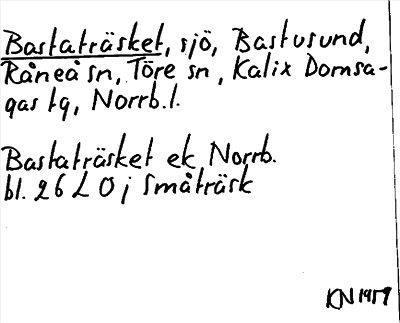 Bastaträsket, sjö, Bastusund,
Råneå sn, Töre sn, Kalix Domsa-
gas tg, Norrb.l.
Bastaträsket ek Norrb.
bl. 26 L 0 j Småträsk
KN 1959